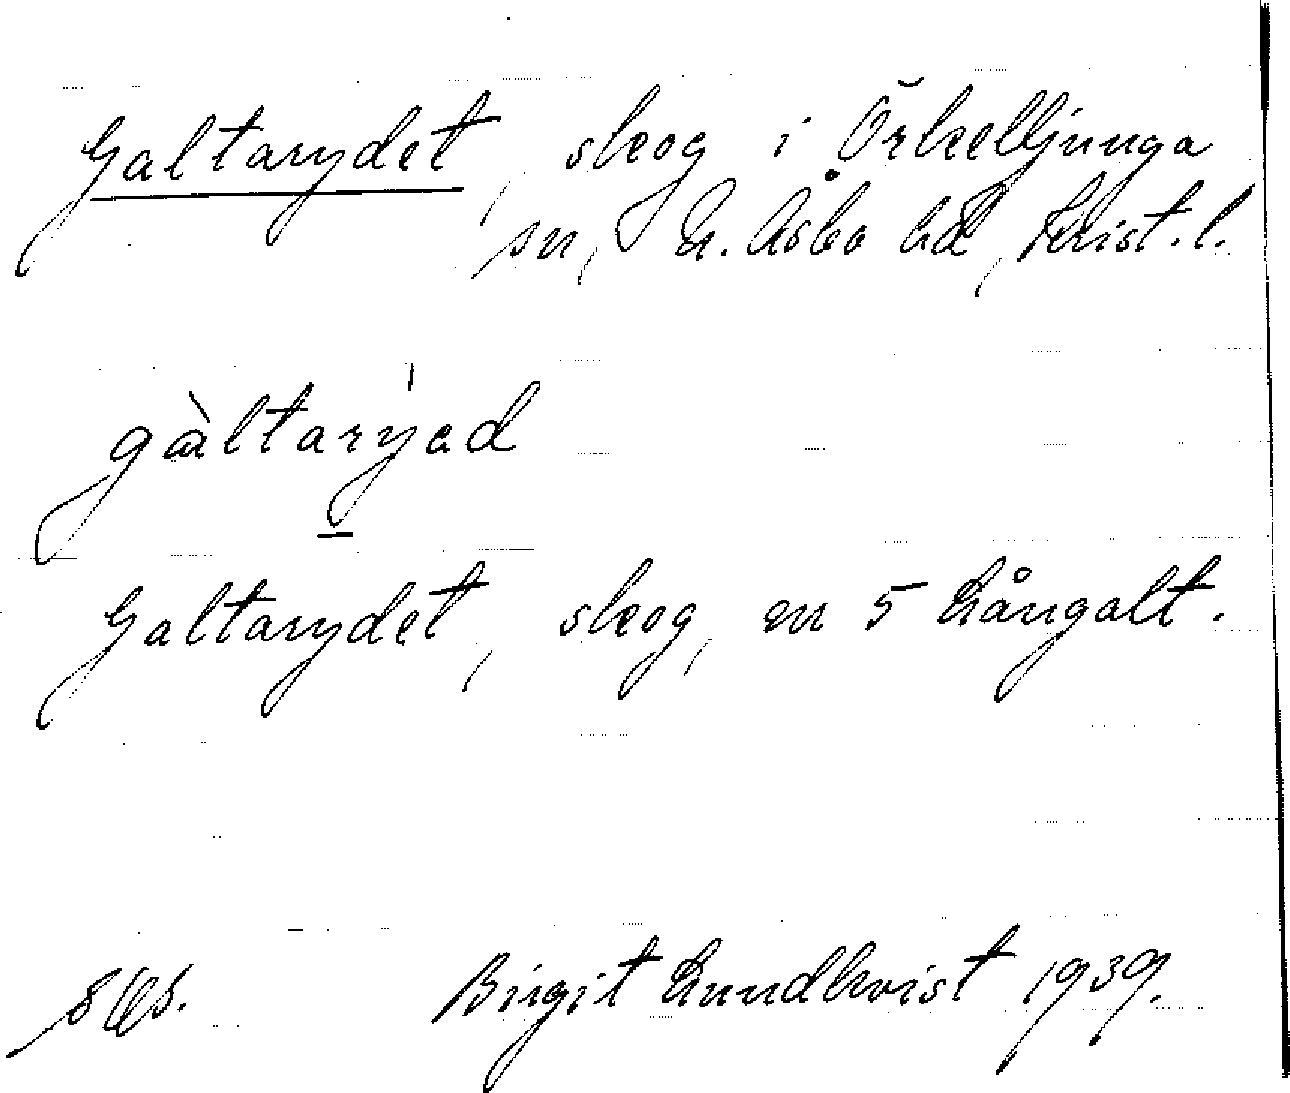 Galtarydet, skog i Örkelljunga
sn, N. Åsbo hd, Krist. l.
gàltarýed
Galtarydet, skog, en 5 Långalt.
Birgit Lundkvist 1939.